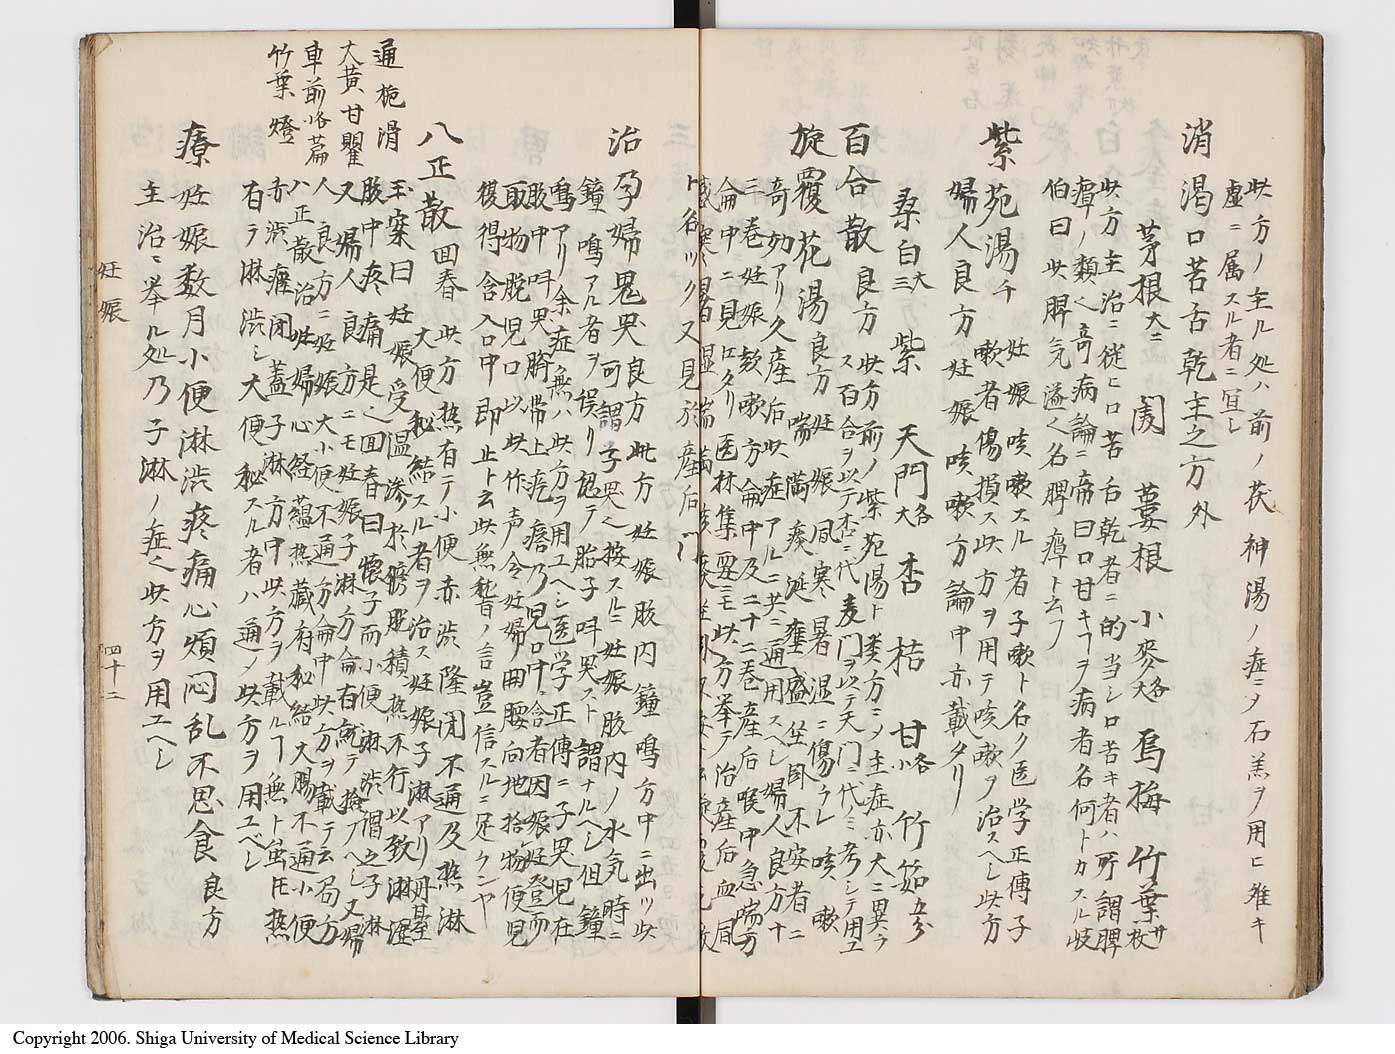 此方ノ主ル処ハ前ノ茯神湯ノ症ニメ石羔ヲ用ヒ難キ
虚ニ属スル者ニ宜シ
消渇口苦舌乾主之方 外
茅根 大二 蔞根 小麥 大各 烏梅 竹葉 廿枚
此方主治ニ從ヒ口苦舌乾者ニ的当シ口苦キ者ハ所謂脾
癉ノ類也奇病論ニ帝曰口甘キヿヲ病者名何トカスル岐
伯曰此脾氣溢也名脾癉ト云フ
紫苑湯 妊娠咳嗽スル者子嗽ト名ク医学正傳子
嗽者傷損ス此方ヲ用テ咳嗽ヲ治スヘシ此方
婦人良方妊娠咳嗽方論中亦載タリ
桑白 大三 紫 天門 大各 杏 桔 甘 小各 竹茹 五分
百合散 良方 此方前ノ紫苑湯ト類方ニメ主症亦大ニ異ラ
ス百合ヲ以テ杏ニ代麦門ヲ以テ天門ニ代ミ考シテ用ユ
旋覆花湯 良方 妊娠風寒暑湿ニ傷ラレ咳嗽
喘満痰涎壅盛坐臥不安者ニ
奇効アリ久産后此症アルニ共ニ通用スヘシ婦人良方十
三巻妊娠欬嗽方論中及二十二巻産后喉中急喘方
論中ニ見ヱタリ医林集要ニモ此方挙テ治産后血風
感寒暑湿喘満
ト名ツク又見於産后門
治孕婦鬼哭 良方 此方妊娠股内鐘鳴方中ニ出ツ此
可謂子哭也按スルニ妊娠股内ノ水気時ニ
鐘鳴アル者ヲ誤リ認テ胎子呌哭スト謂ナルヘシ但鐘
鳴アリ余症無ハ此方ヲ用ユヘシ医学正傳ニ子哭児在
股中呌哭臍帯上疙瘩乃児口中含者因娠妊登而
取物脱児口以此作声令妊婦曲腰向地拾物便児
復得含入口中即止ト云此無稽ノ言豈信スルニ足ランヤ
八正散 回春 此方熱有テ小便赤渋隆閉不通及熱淋
大便秘結スル者ヲ治ス妊娠子淋アリ丹基
玉案曰妊娠受温滲於膀胱積熱不行以致淋澀
股中疼痛是也回春曰懐子而小便淋渋謂之子淋
又婦人良方ニモ妊娠子淋方論有就テ撿フヘシ又婦
人良方ニ妊娠大小便不通方論中此方ヲ載テ云局方
八正散治妊婦心経蘊熱藏府秘結大腸不通小便
赤渋癃閉蓋子淋方中此方ヲ載ルヿ無ト虽𪜈熱
有ラ淋渋シ大便秘スル者ハ通メ此方ヲ用ユベシ
通 梔 滑
大黄 甘 瞿
車前 各 萹
竹葉 燈
療妊娠数月小便淋渋疼痛心煩悶乱不思食 良方
主治ニ挙ル処乃子淋ノ症也此方ヲ用ユヘシ
妊娠
四十二
Copyright 2006. Shiga University of Medical Science Library